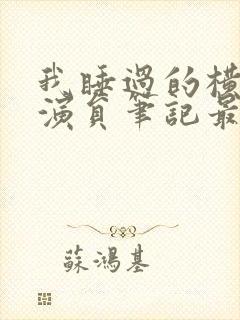 我睡過的橫
演員筆記最
蘇鴻基